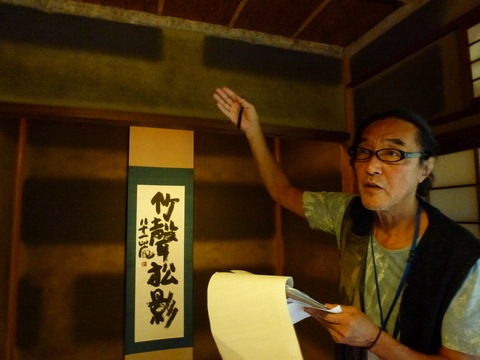 竹聲松影